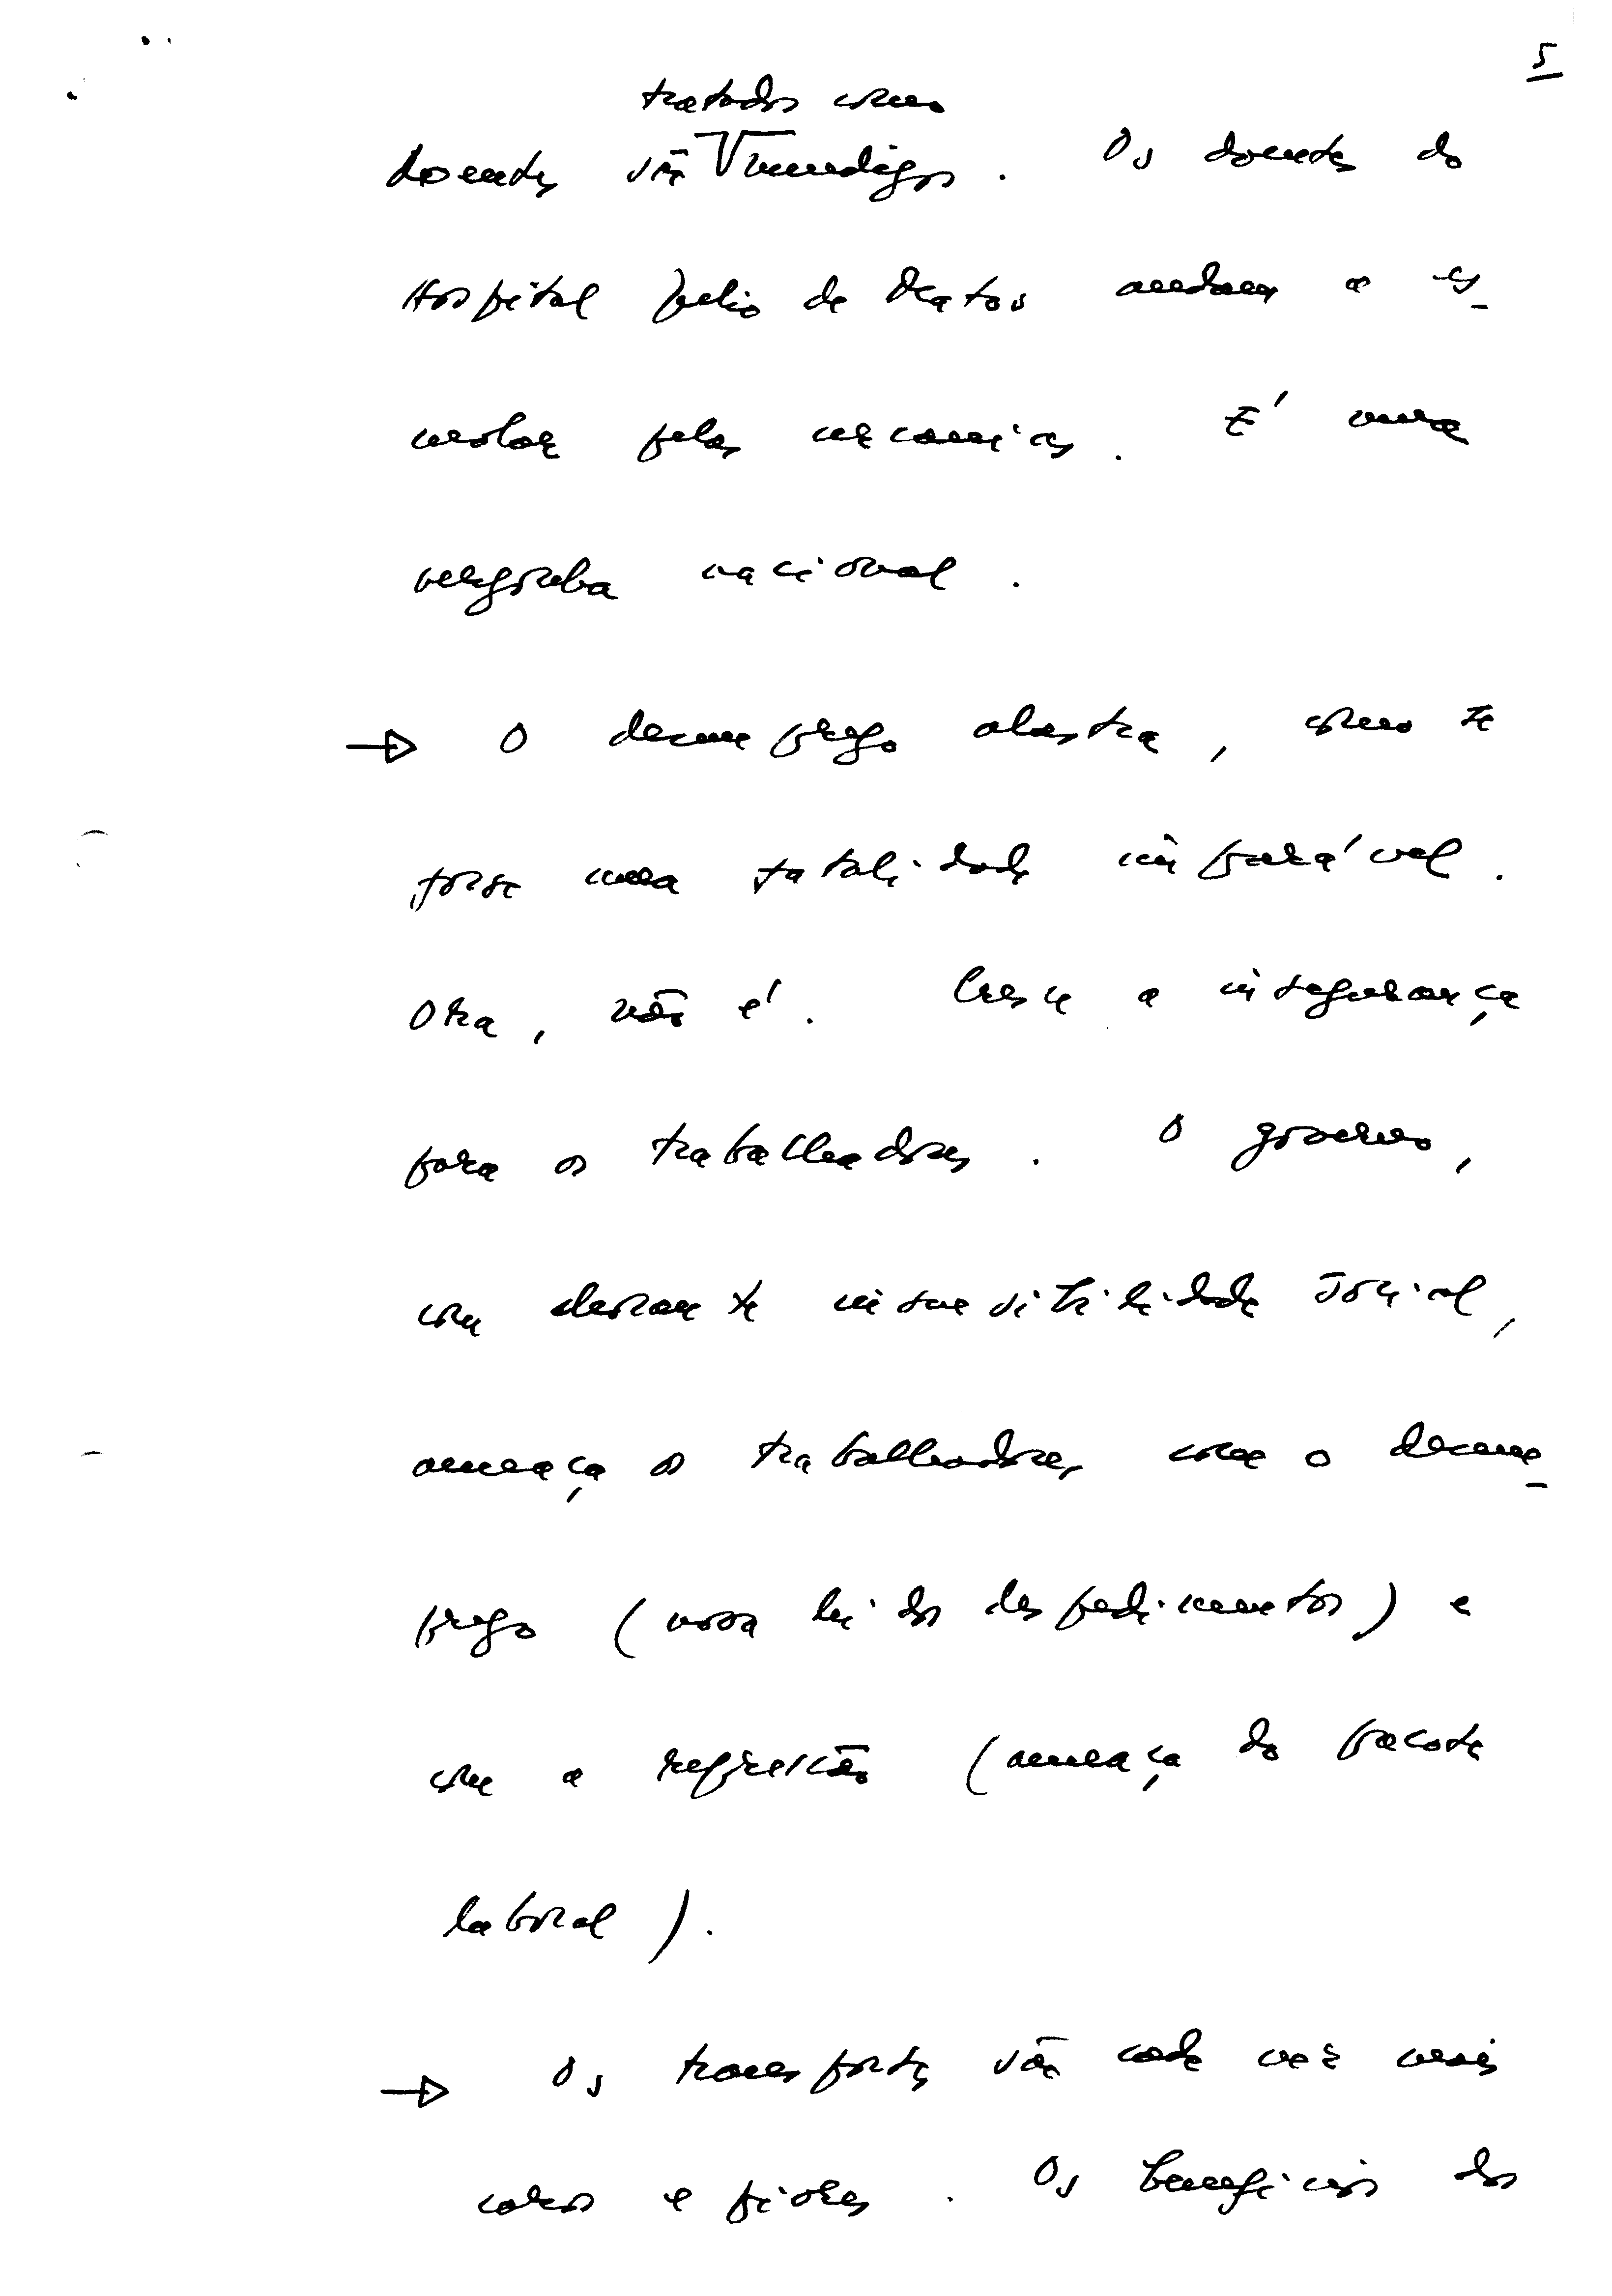 5
tratados como
doentes são mendigos. Os doentes do
Hospital Julio de Matos andam a es-
molar pelas vizinhanças. É uma
vergonha nacional.
→ O desemprego alastra, como se
fosse uma fatalidade imparável.
Ora, não é. Cresce a insegurança
para os trabalhadores. O governo,
com chocante insensibilidade social,
ameaça os trabalhadores com o desem-
prego (nova lei dos despedimentos) e
com a repressão (ameaça do pacote
laboral).
→ Os transportes são cada vez mais
caros e piores. Os benefícios dos